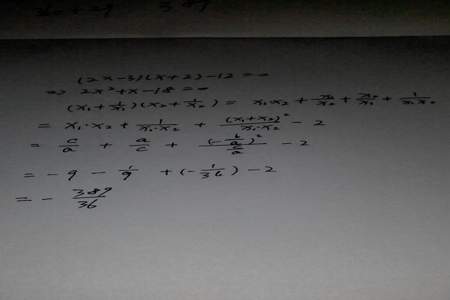 (2x-3)(x+2)-12=0
=> 2x²+x-18=0
(x₁+1/x₁)(x₂+1/x₂) = x₁x₂+x₁/x₂+x₂/x₁+1/x₁x₂
= x₁·x₂+1/x₁·x₂+(x₁+x₂)²/x₁·x₂-2
= c/a+a/c+(-b/a)²/(c/a)-2
= -9-1/9+(-1/36)-2
= -389/36